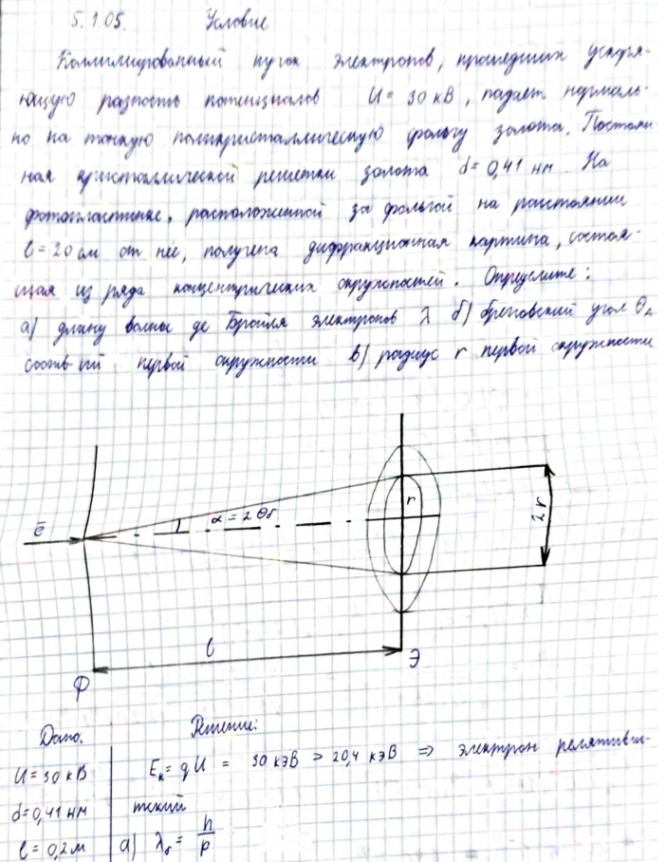 5.1.05. Условие
Коллимированный пучок электронов, прошедших ускоря-
ющую разность потенциалов U = 30 кВ, падает нормаль-
но на тонкую поликристаллическую фольгу золота. Постоян-
ная кристаллической решетки золота d = 0,41 нм. На
фотопластинке, расположенной за фольгой на расстоянии
l = 20 см от нее, получена дифракционная картина, состоя-
щая из ряда концентрических окружностей. Определите:
а) длину волны де Бройля электронов λ б) брегговский угол θ
соотв-ий первой окружности в) радиус r первой окружности
ē
α = 2θб
r
2r
l
Ф
Э
Дано:
Решение:
U = 30 кВ
d = 0,41 нм
l = 0,2 м
Eк = qU = 30 кэВ > 20,4 кэВ ⇒ электрон релятивис-
тский
а) λб = h/p